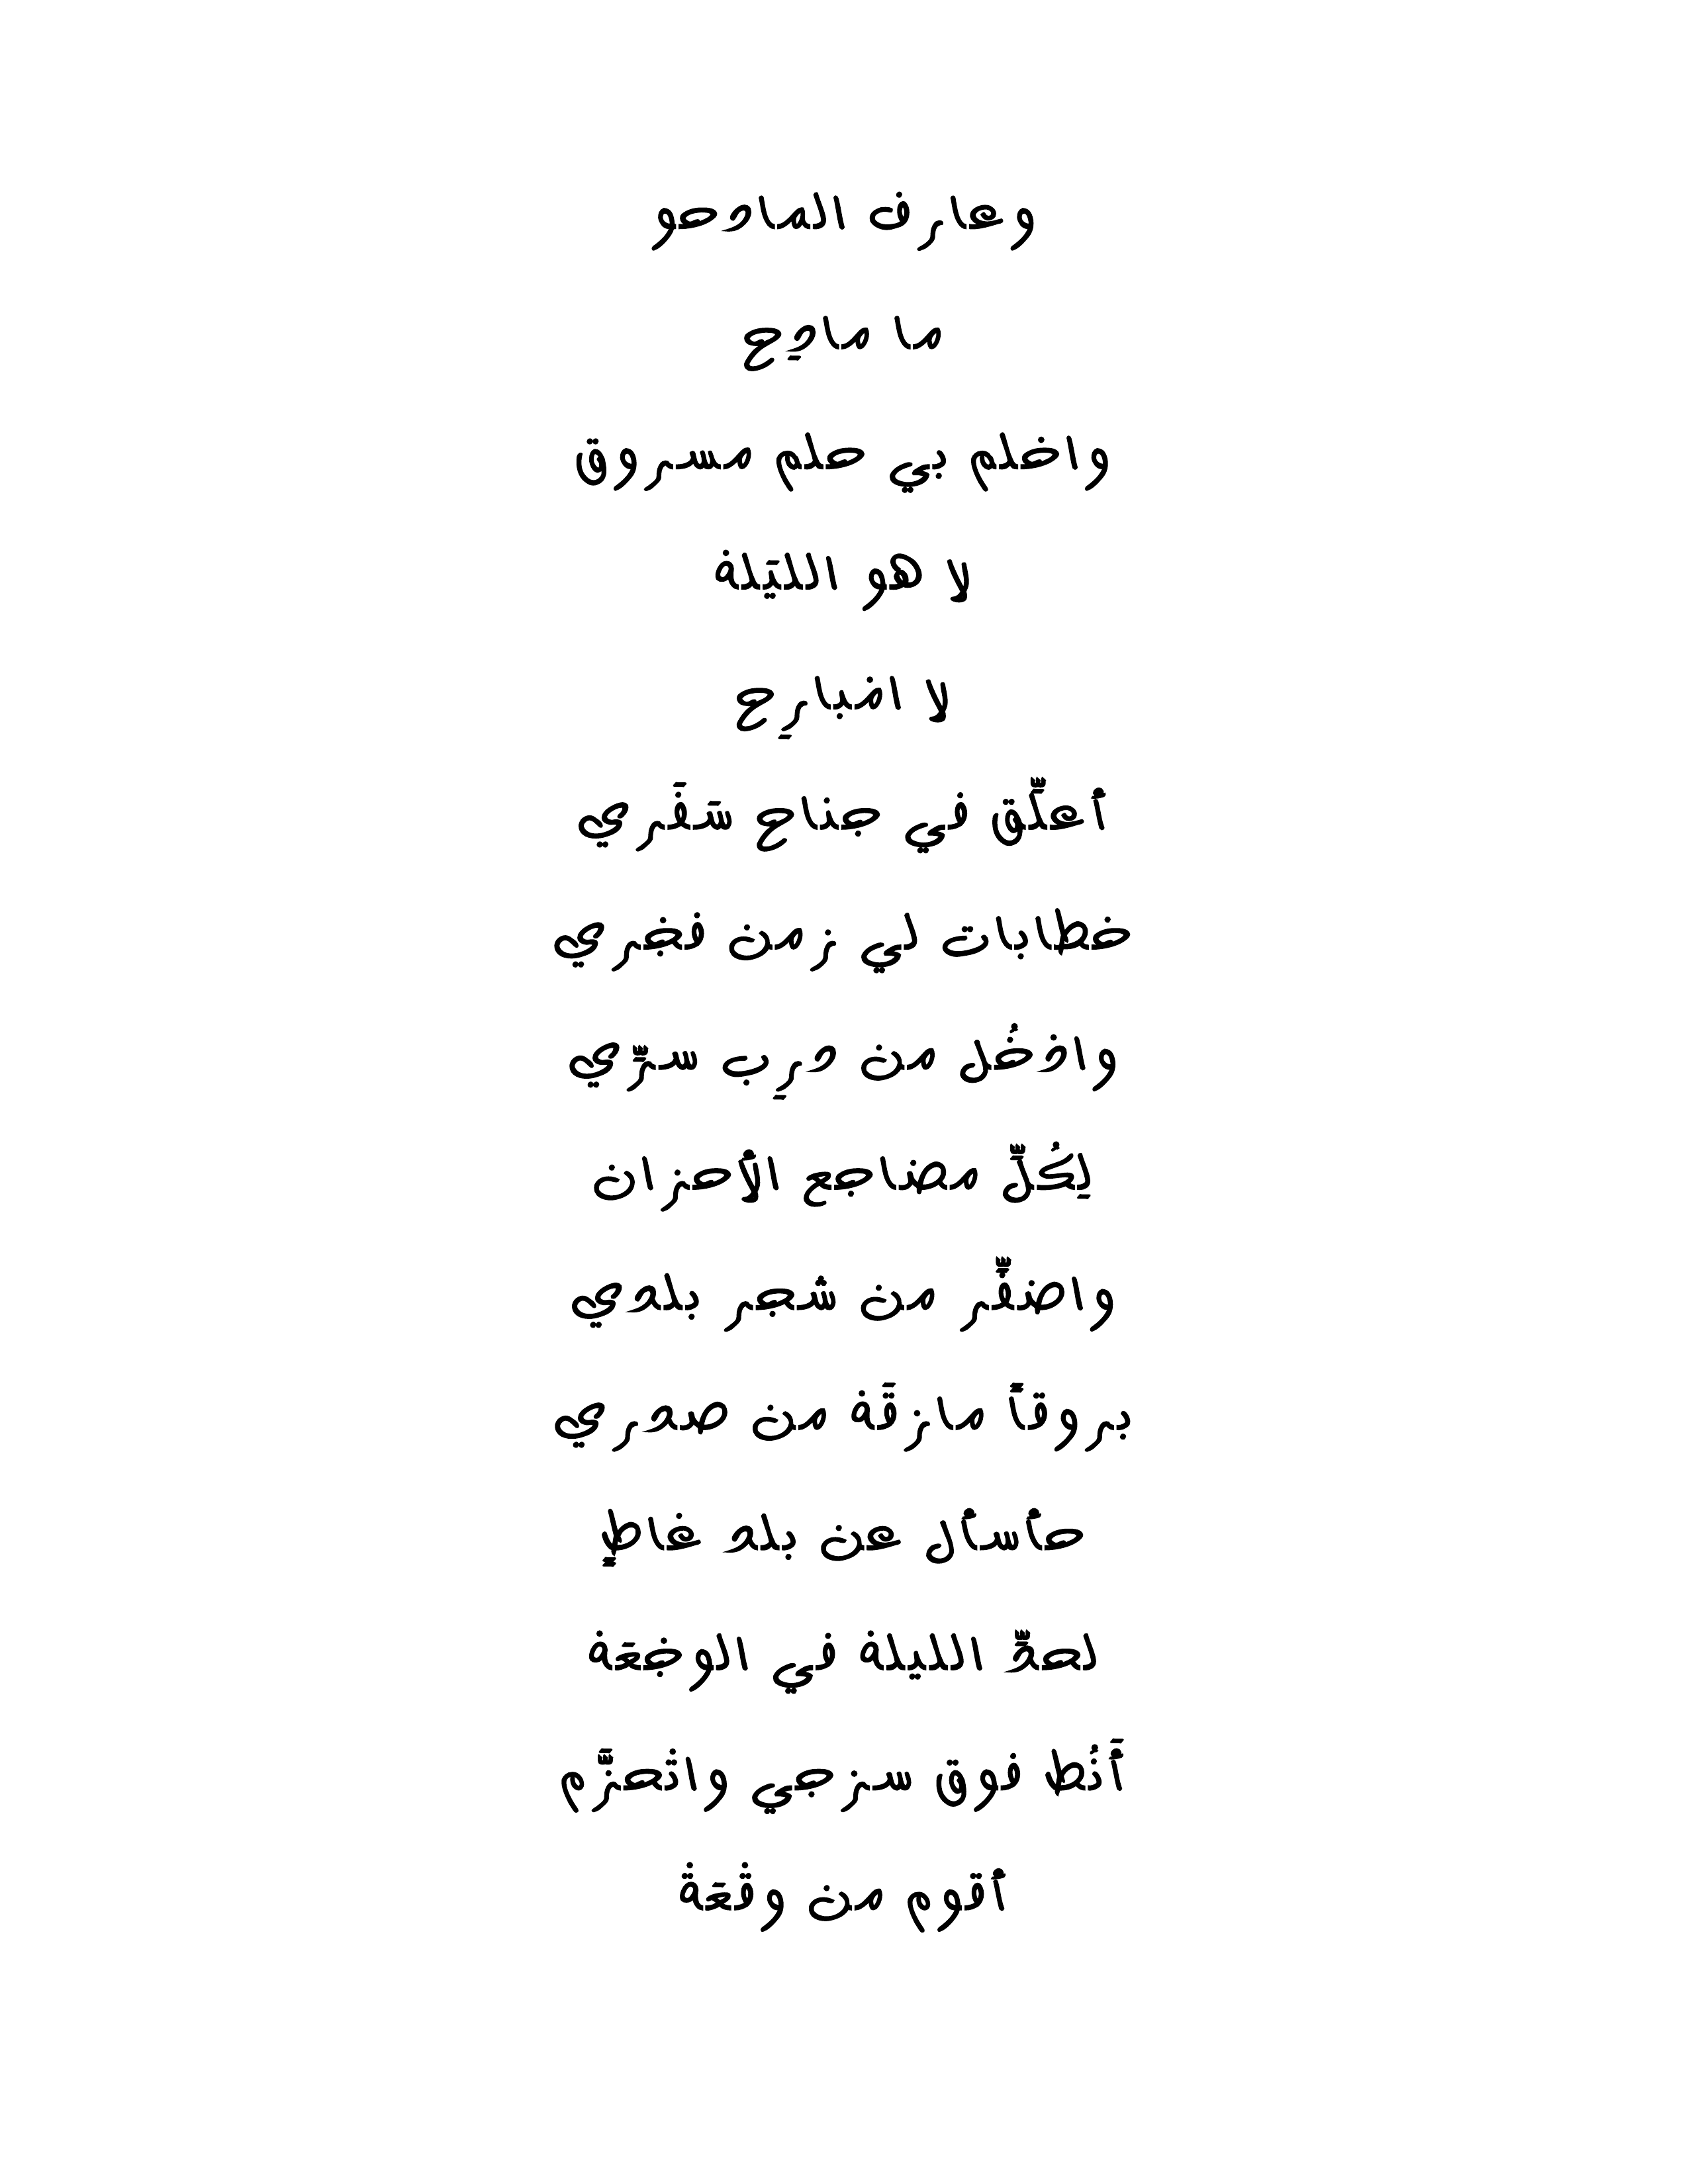 وعارف المادحو
ما مادِح
واحْلم بي حلم مسروق
لا هو الليَلة
لا امْبارِح
أعلِّق في جناح سَفَري
خطابات لي زمن فجْري
وادْخُل من درِب سرِّي
لِكُلِّ مضاجع الأحزان
واضفِّر من شجر بلدي
بروقاً مارْقَة من صدري
حأسأل عن بلد غاطٍ
لحدِّ الليلة في الوجْعَة
أَنُط فوق سرْجي واتْحزَّم
أقوم من وقْعَةْ